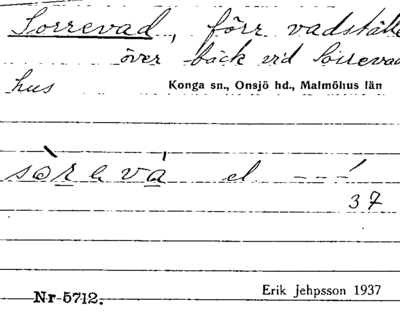 Sorrevad, förr vadställe
över bäck vid Sörrevad
hus Konga sn., Onsjö hd., Malmöhus län
el. – – /
37
Nr 5712. Erik Jehpsson 1937